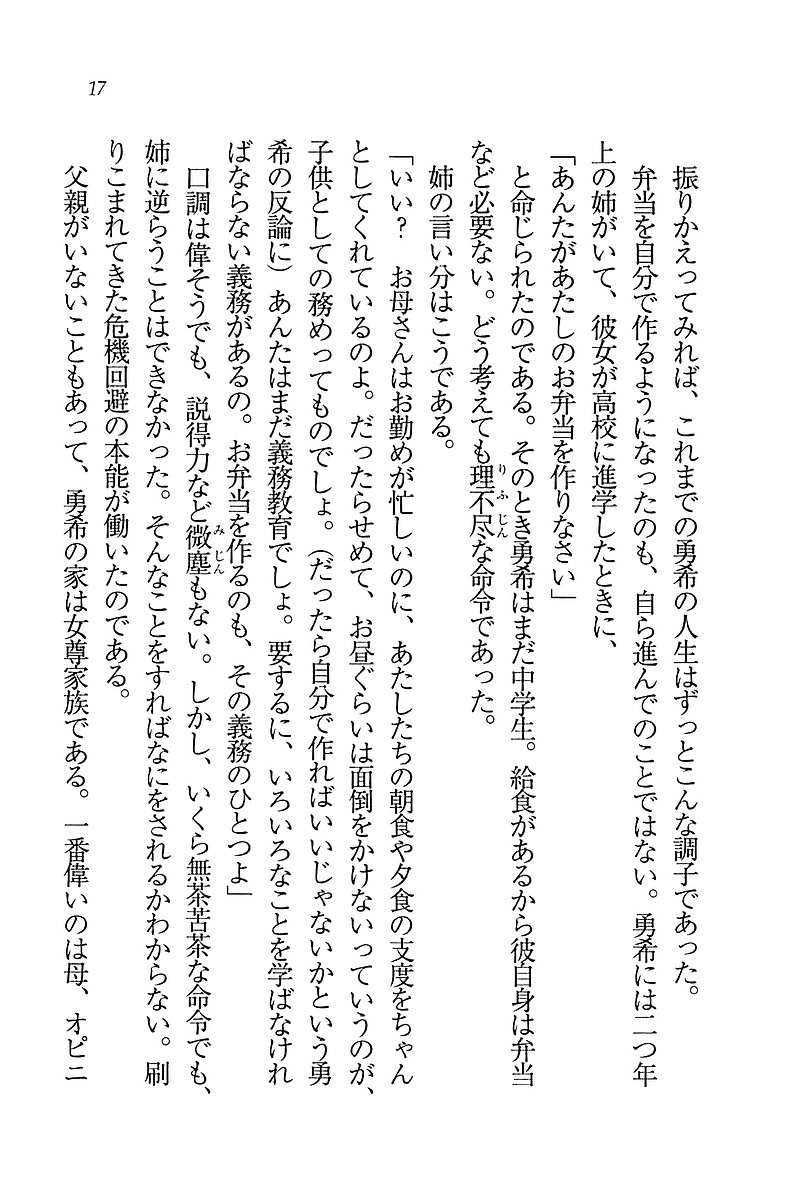 17
振りかえってみれば、これまでの勇希の人生はずっとこんな調子であった。
弁当を自分で作るようになったのも、自ら進んでのことではない。勇希には二つ年
上の姉がいて、彼女が高校に進学したときに、
「あんたがあたしのお弁当を作りなさい」
と命じられたのである。そのとき勇希はまだ中学生。給食があるから彼自身は弁当
など必要ない。どう考えても理不尽な命令であった。
姉の言い分はこうである。
「いい？　お母さんはお勤めが忙しいのに、あたしたちの朝食や夕食の支度をちゃん
としてくれているのよ。だったらせめて、お昼ぐらいは面倒をかけないっていうのが、
子供としての務めってものでしょ。（だったら自分で作ればいいじゃないかという勇
希の反論に）あんたはまだ義務教育でしょ。要するに、いろいろなことを学ばなけれ
ばならない義務があるの。お弁当を作るのも、その義務のひとつよ」
口調は偉そうでも、説得力など微塵もない。しかし、いくら無茶苦茶な命令でも、
姉に逆らうことはできなかった。そんなことをすればなにをされるかわからない。刷
りこまれてきた危機回避の本能が働いたのである。
父親がいないこともあって、勇希の家は女尊家族である。一番偉いのは母、オピニ